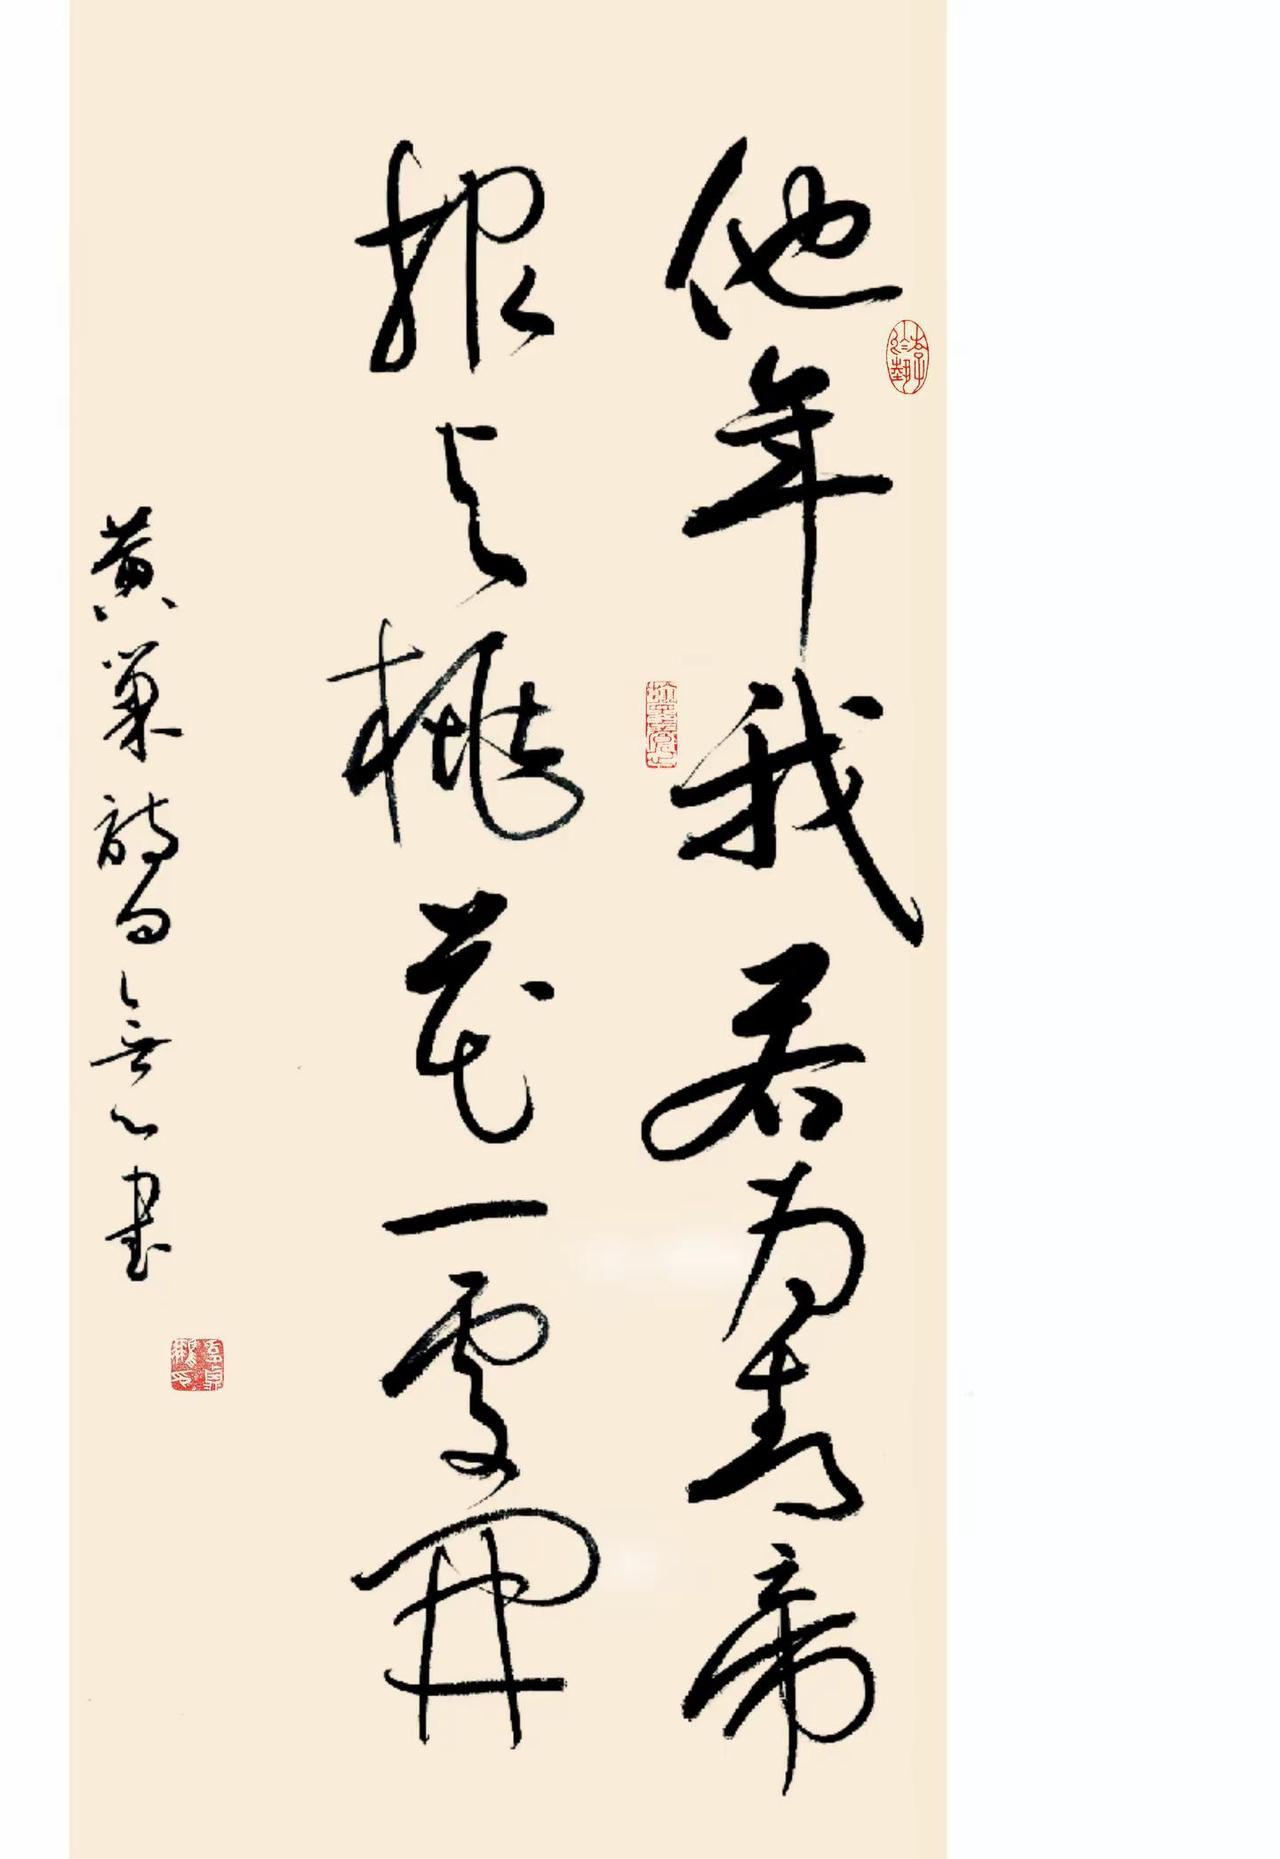 他年我若为青帝
报与桃花一处开
黄巢诗句 无心书